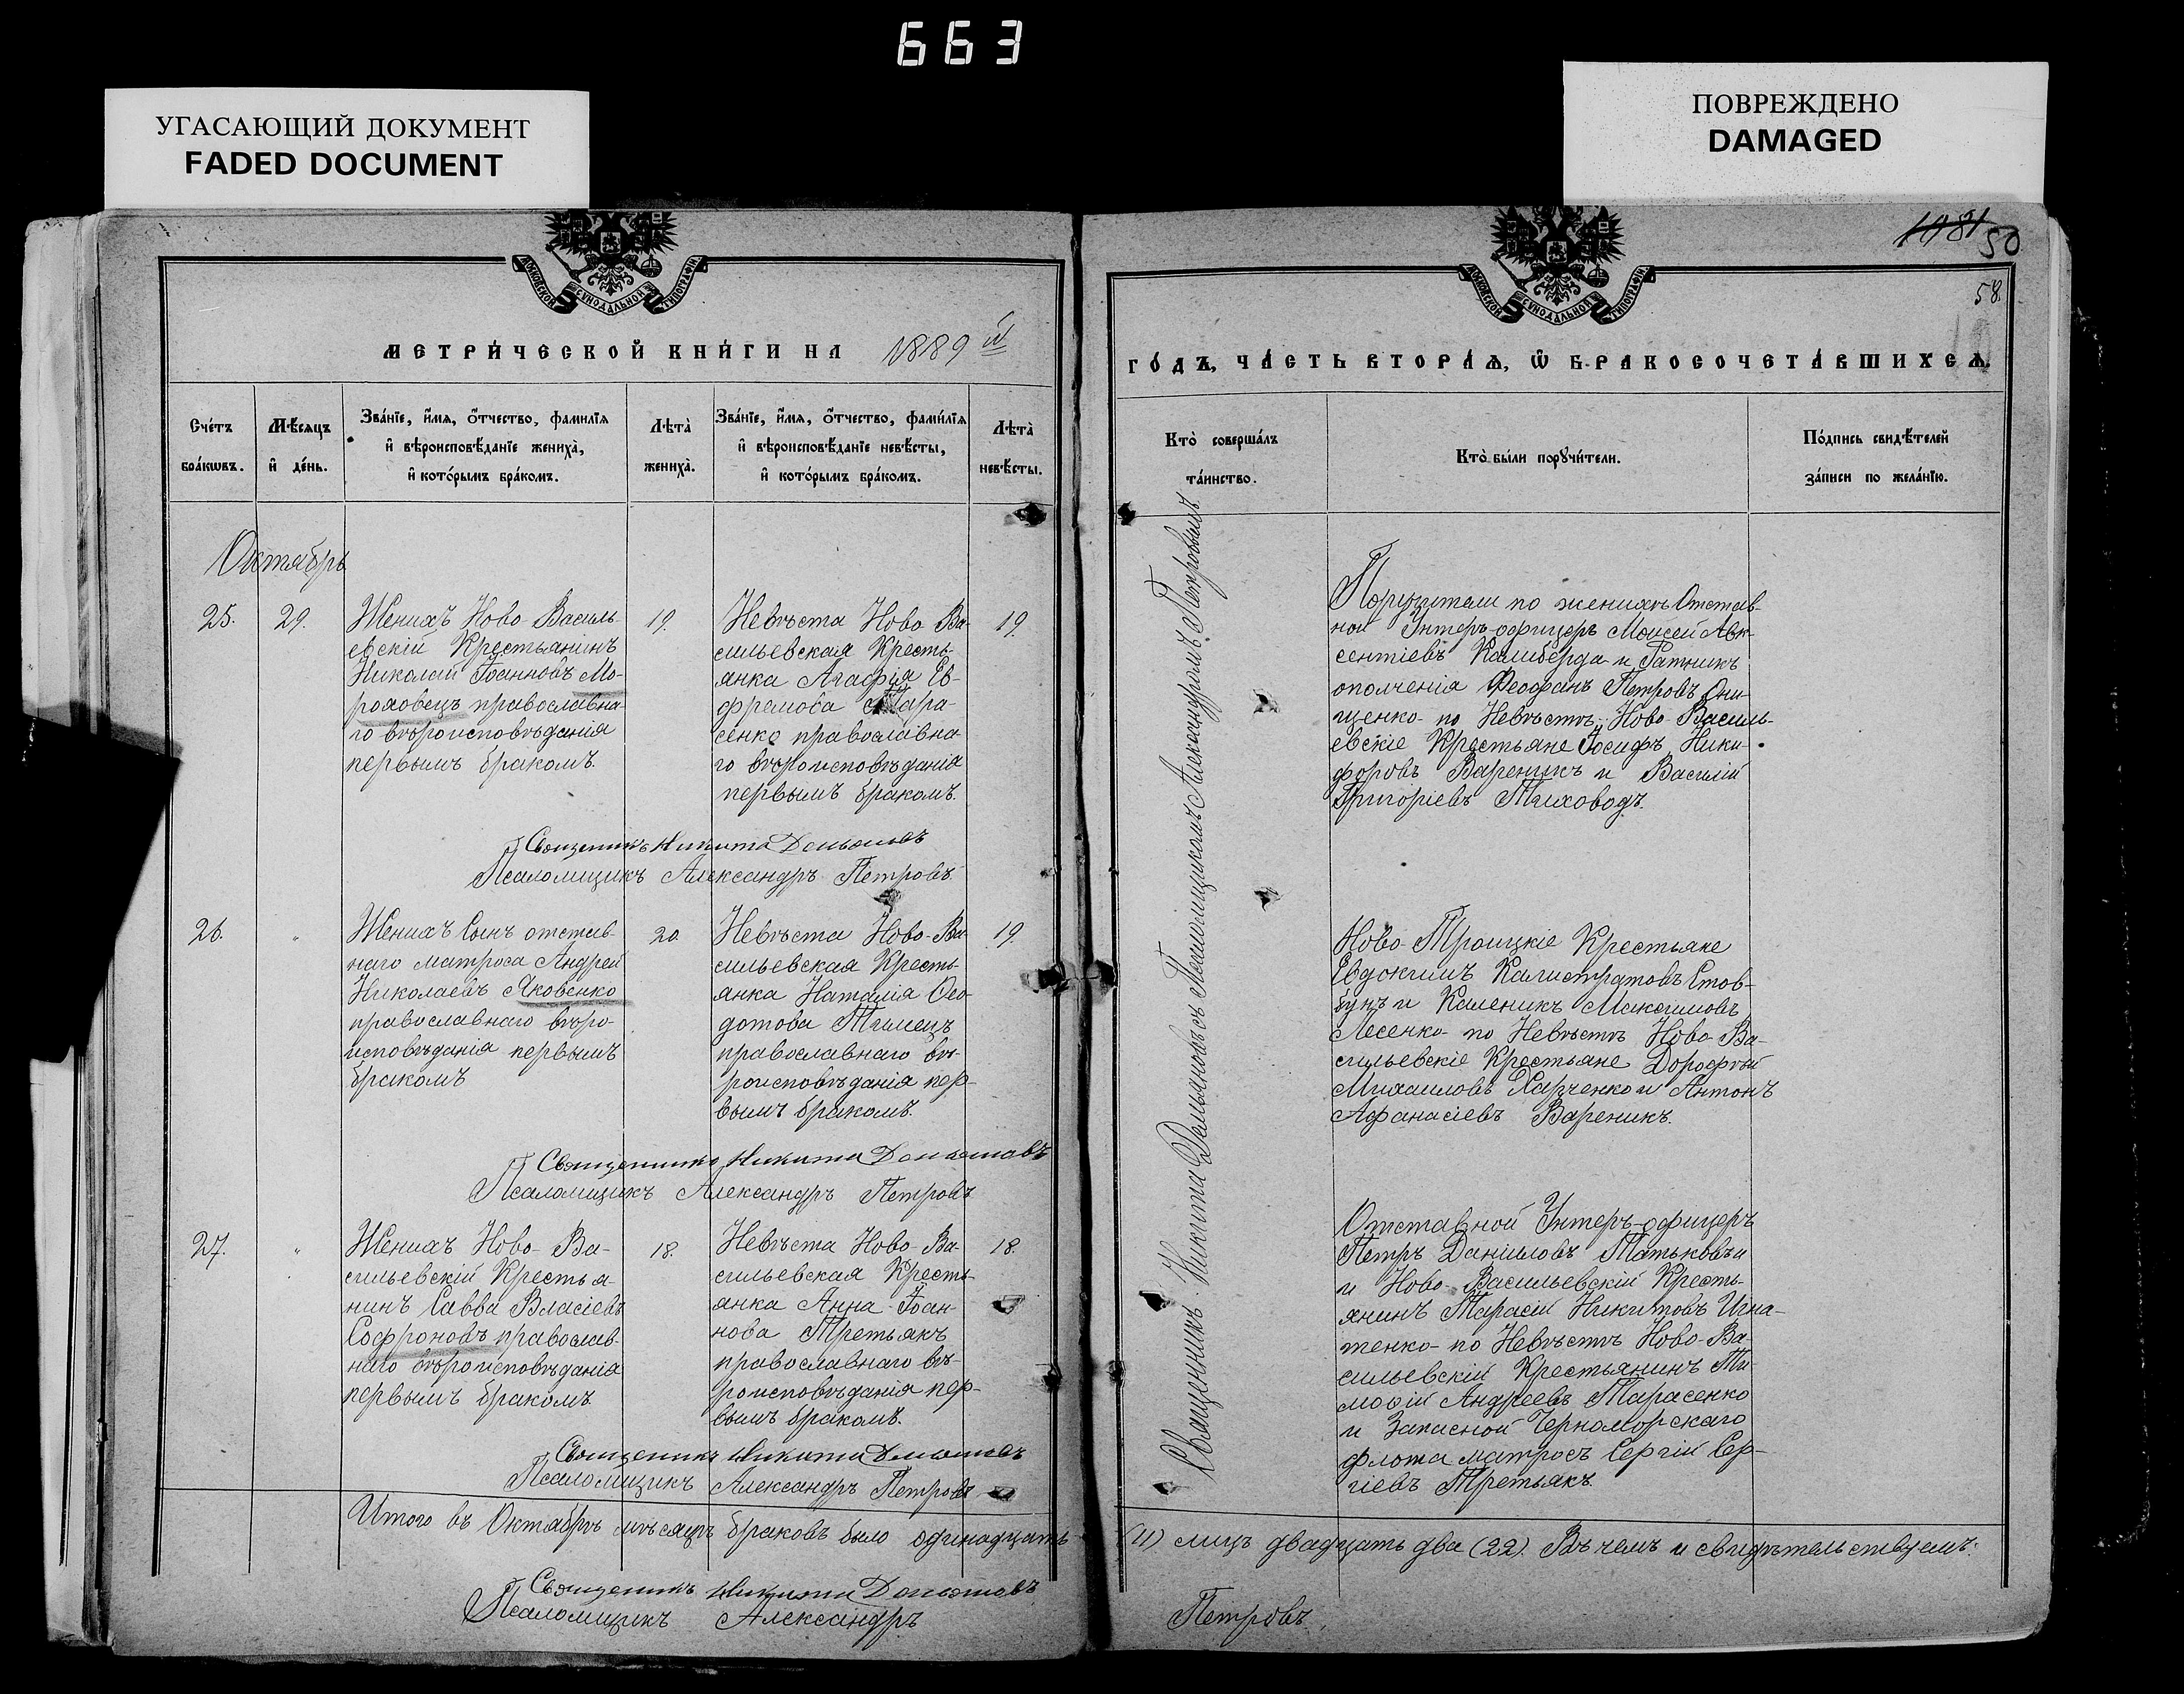 663
УГАСАЮЩИЙ ДОКУМЕНТ
FADED DOCUMENT
ПОВРЕЖДЕНО
DAMAGED
МОСКОВСКОЙ СѴНОДАЛЬНОЙ ТИПОГРАФІИ
МОСКОВСКОЙ СѴНОДАЛЬНОЙ ТИПОГРАФІИ
1081 50
58.
МЕТРИ́ЧЕСКОЙ КНИ́ГИ НА 1889 й
ГО́ДЪ, ЧА́СТЬ ВТОРА́Ѧ, Ѿ БРАКОСОЧЕТА́ВШИХСѦ.
Сче́тъ
бра́кѡвъ.
Мѣ́сѧцъ
и҆ де́нь.
Зва́нїе, и҆́мѧ, ѻ҆́тчество, фами́лїѧ
и҆ вѣроисповѣ́данїе жениха̀,
и҆ кото́рымъ бра́комъ.
Лѣ́та̀
жениха̀.
Зва́нїе, и҆́мѧ, ѻ҆́тчество, фами́лїѧ
и҆ вѣроисповѣ́данїе невѣ́сты,
и҆ кото́рымъ бра́комъ.
Лѣ́та̀
невѣ́сты.
Кто̀ соверша́лъ
та́инство.
Кто̀ бы́ли порꙋчи́тели.
По́дпись свидѣ́телей
за́писи по жела́нїю.
Октябрь
25.
29.
Женихъ Ново-Василь-
евскій Крестьянинъ
Николай Іоанновъ Мо-
роховецъ православна-
го вѣроисповѣданія
первымъ бракомъ.
19.
Невѣста Ново-Ва-
сильевская Кресть-
янка Агафія Ев-
фремова Тара-
сенко православна-
го вѣроисповѣданія
первымъ бракомъ.
19.
Поручители по женихѣ Отстав-
ной Унтеръ-офицеръ Моисей Авк-
сентіевъ Калиберда и Ратникъ
ополченія Феофанъ Петровъ Они-
щенко - по Невѣстѣ: Ново-Василь-
евскіе Крестьяне Іосифъ Ники-
форовъ Вареникъ и Василій
Григоріевъ Тиховодъ.
Священникъ Никита Демьяновъ
Псаломщикъ Александръ Петровъ.
26.
"
Женихъ Сынъ отстав-
наго матроса Андрей
Николаевъ Яковенко
православнаго вѣро-
исповѣданія первымъ
бракомъ
20.
Невѣста Ново-Ва-
сильевская Кресть-
янка Наталія Ѳео-
дотова Тимецъ
православнаго вѣ-
роисповѣданія пер-
вымъ бракомъ.
19.
Ново-Троицкіе Крестьяне
Евдокимъ Калистратовъ Стов-
бунъ и Каленикъ Максимовъ
Лесенко - по Невѣстѣ Ново-Ва-
сильевскіе Крестьяне Дорофѣй
Михаиловъ Харченко и Антонъ
Афанасіевъ Вареникъ.
Священникъ Никита Демьяновъ
Псаломщикъ Александръ Петровъ
27.
"
Женихъ Ново-Ва-
сильевскій Крестья-
нинъ Савва Власіевъ
Софроновъ православ-
наго вѣроисповѣданія
первымъ бракомъ.
18.
Невѣста Ново-Ва-
сильевская Кресть-
янка Анна Іоан-
нова Третьякъ
православнаго вѣ-
роисповѣданія пер-
вымъ бракомъ.
18.
Отставной Унтеръ-офицеръ
Петръ Даніиловъ
и Ново-Васильевскій Кресть-
янинъ Тарасій Никитовъ Игна-
тенко - по Невѣстѣ Ново-Ва-
сильевскій Крестьянинъ Ти-
моѳій Андреевъ Тарасенко
и Запасной Черноморскаго
флота матросъ Сергій Сер-
гіевъ Третьякъ.
Священникъ Никита Демьяновъ
Псаломщикъ Александръ Петровъ
Священникъ Никита Демьяновъ съ Псаломщикомъ Александромъ Петровымъ
Итого въ Октябрѣ мѣсяцѣ браковъ было одинадцать (11) лицъ двадцать два (22). Въ чемъ и свидѣтельствуемъ:
Священникъ Никита Демьяновъ
Псаломщикъ Александръ Петровъ.